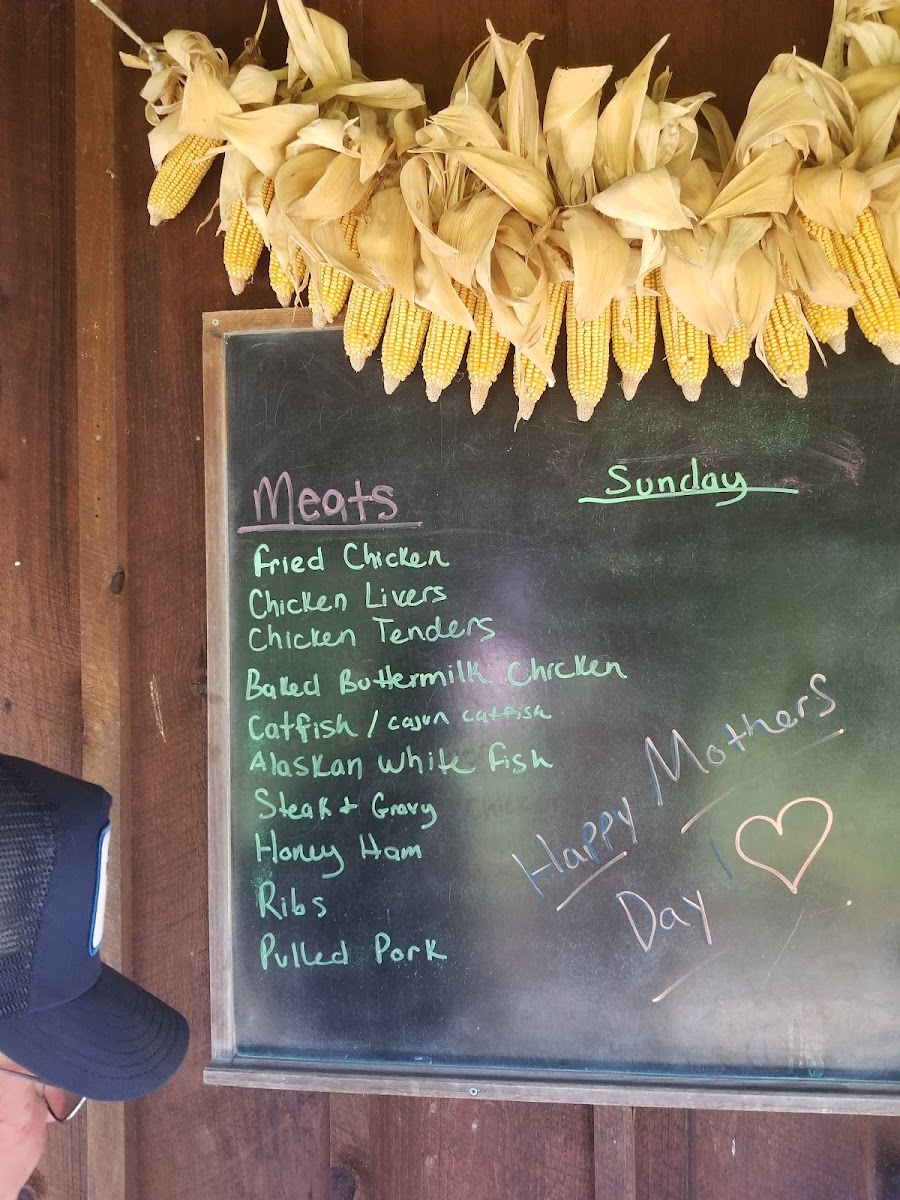 Meats
Sunday
Fried Chicken
Chicken Livers
Chicken Tenders
Baked Buttermilk Chicken
Catfish / cajun catfish
Alaskan white fish
Steak + Gravy
Honey Ham
Ribs
Pulled Pork
Happy Mothers
Day !